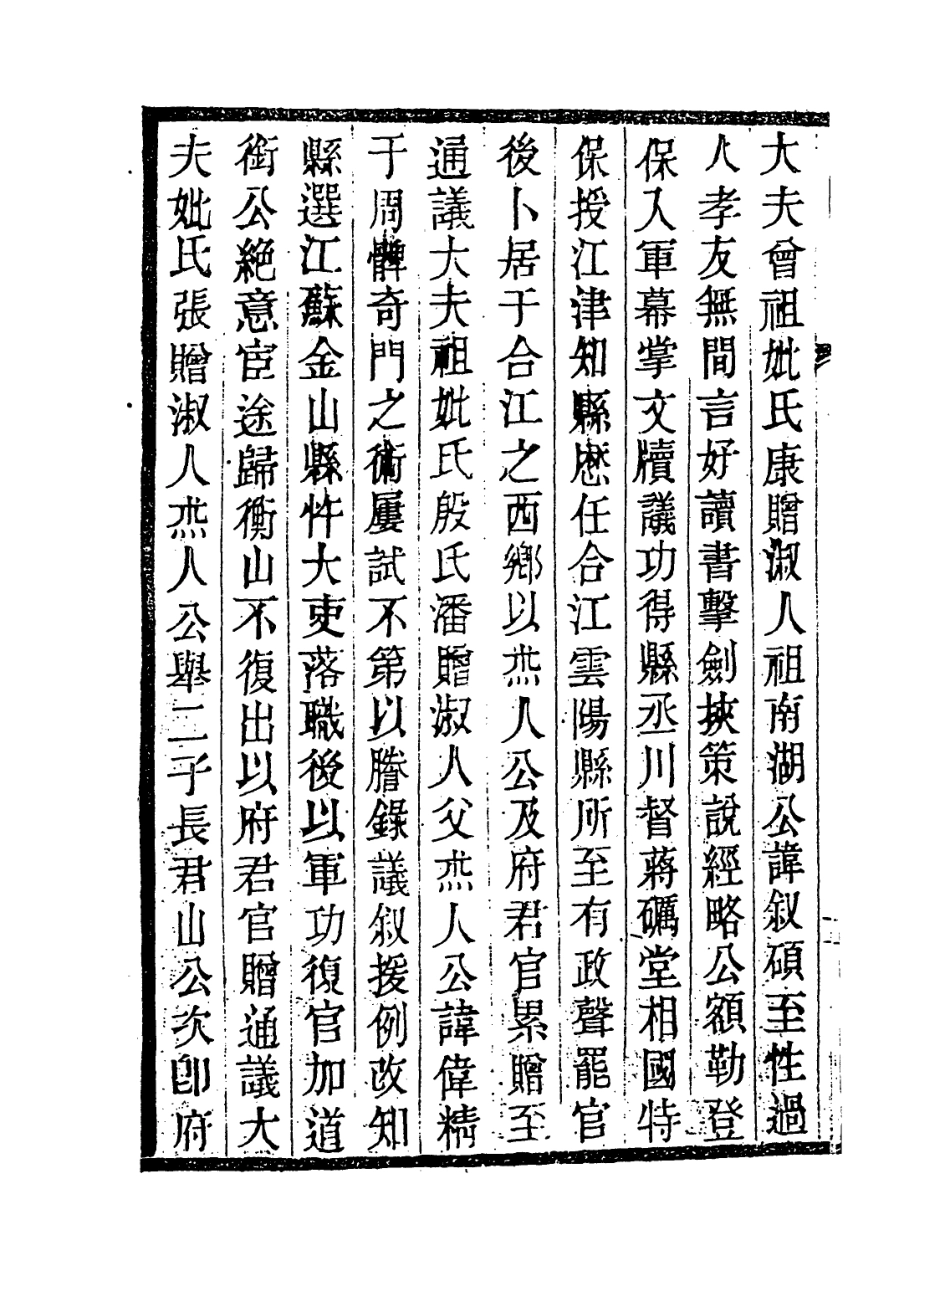 大夫曾祖妣氏康贈淑人祖南湖公諱叙碩至性過
人孝友無間言好讀書擊劍挾策說經略公額勒登
保入軍幕掌文牘議功得縣丞川督蔣礪堂相國特
保授江津知縣厯任合江雲陽縣所至有政聲罷官
後卜居于合江之西鄉以烝人公及府君官累贈至
通議大夫祖妣氏殷氏潘贈淑人父烝人公諱偉精
于周髀奇門之術屢試不第以謄錄議叙援例改知
縣選江蘇金山縣忤大吏落職後以軍功復官加道
銜公絶意宦途歸衡山不復出以府君官贈通議大
夫妣氏張贈淑人烝人公舉二子長君山公次卽府